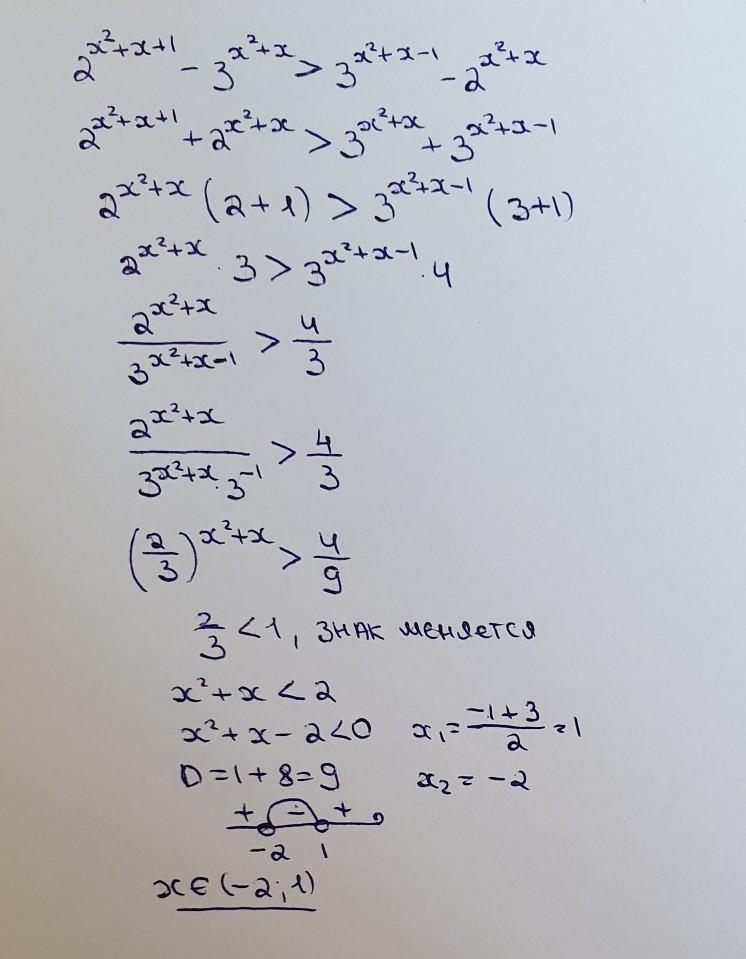 2^{x²+x+1} - 3^{x²+x} > 3^{x²+x-1} - 2^{x²+x}
2^{x²+x+1} + 2^{x²+x} > 3^{x²+x} + 3^{x²+x-1}
2^{x²+x} (2+1) > 3^{x²+x-1} (3+1)
2^{x²+x} · 3 > 3^{x²+x-1} · 4
\frac{2^{x²+x}}{3^{x²+x-1}} > \frac{4}{3}
\frac{2^{x²+x}}{3^{x²+x} · 3^{-1}} > \frac{4}{3}
(\frac{2}{3})^{x²+x} > \frac{4}{9}
\frac{2}{3} < 1, знак меняется
x² + x < 2
x² + x - 2 < 0   x₁ = \frac{-1+3}{2} = 1
D = 1 + 8 = 9   x₂ = -2
+ - +
-2 1
x ∈ (-2; 1)